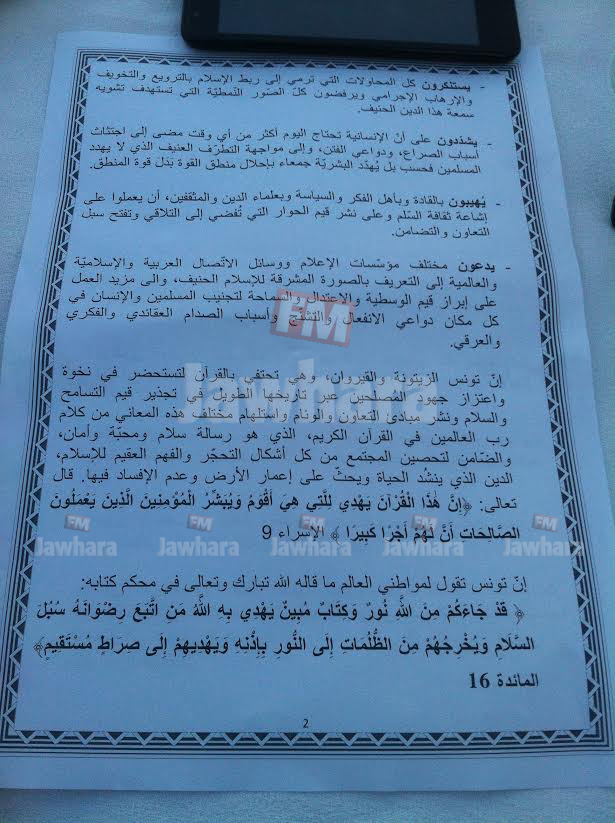 - يستنكرون كل المحاولات التي ترمي إلى ربط الإسلام بالترويع والتخويف
والإرهاب الإجرامي ويرفضون كلّ الصّور النّمطيّة التي تستهدف تشويه
سمعة هذا الدين الحنيف.
- يشدّدون على أنّ الإنسانية تحتاج اليوم أكثر من أي وقت مضى إلى اجتثاث
أسباب الصراع، ودواعي الفتن، وإلى مواجهة التطرّف العنيف الذي لا يهدد
المسلمين فحسب بل يُهدّد البشريّة جمعاء بإحلال منطق القوة بَدل قوة المنطق.
- يُهيبون بالقادة وبأهل الفكر والسياسة وبعلماء الدين والمثقفين، أن يعملوا على
إشاعة ثقافة السّلم وعلى نشر قيم الحوار التي تُفضي إلى التلاقي وتفتح سبل
التعاون والتضامن.
- يدعون مختلف مؤسّسات الإعلام ووسائل الاتّصال العربية والإسلاميّة
والعالمية إلى التعريف بالصورة المشرقة للإسلام الحنيف، والى مزيد العمل
على إبراز قيم الوسطية والاعتدال والسّماحة لتجنيب المسلمين والإنسان في
كل مكان دواعي الانفعال والتشنّج وأسباب الصدام العقائدي والفكري
والعرقي.
إنّ تونس الزيتونة والقيروان، وهي تحتفي بالقرآن لتستحضر في نخوة
واعتزاز جهود المُصلحين عبر تاريخها الطويل في تجذير قيم التسامح
والسلام ونشر مبادئ التعاون والوئام واستلهام مختلف هذه المعاني من كلام
رب العالمين في القرآن الكريم، الذي هو رسالة سلام ومحبّة وأمان،
والضّامن لتحصين المجتمع من كل أشكال التحجّر والفهم العقيم للإسلام،
الدين الذي ينشُد الحياة ويحثّ على إعمار الأرض وعدم الإفساد فيها. قال
تعالى: ﴿إِنَّ هَٰذَا الْقُرْآنَ يَهْدِي لِلَّتِي هِيَ أَقْوَمُ وَيُبَشِّرُ الْمُؤْمِنِينَ الَّذِينَ يَعْمَلُونَ
الصَّالِحَاتِ أَنَّ لَهُمْ أَجْرًا كَبِيرًا ﴾ الإسراء 9
إنّ تونس تقول لمواطني العالم ما قاله الله تبارك وتعالى في محكم كتابه:
﴿ قَدْ جَاءَكُمْ مِنَ اللَّهِ نُورٌ وَكِتَابٌ مُبِينٌ يَهْدِي بِهِ اللَّهُ مَنِ اتَّبَعَ رِضْوَانَهُ سُبُلَ
السَّلَامِ وَيُخْرِجُهُمْ مِنَ الظُّلُمَاتِ إِلَى النُّورِ بِإِذْنِهِ وَيَهْدِيهِمْ إِلَى صِرَاطٍ مُسْتَقِيمٍ﴾
المائدة 16
2
FM
Jawhara
FM
Jawhara
FM
Jawhara
FM
Jawhara
FM
Jawhara
FM
Jawhara